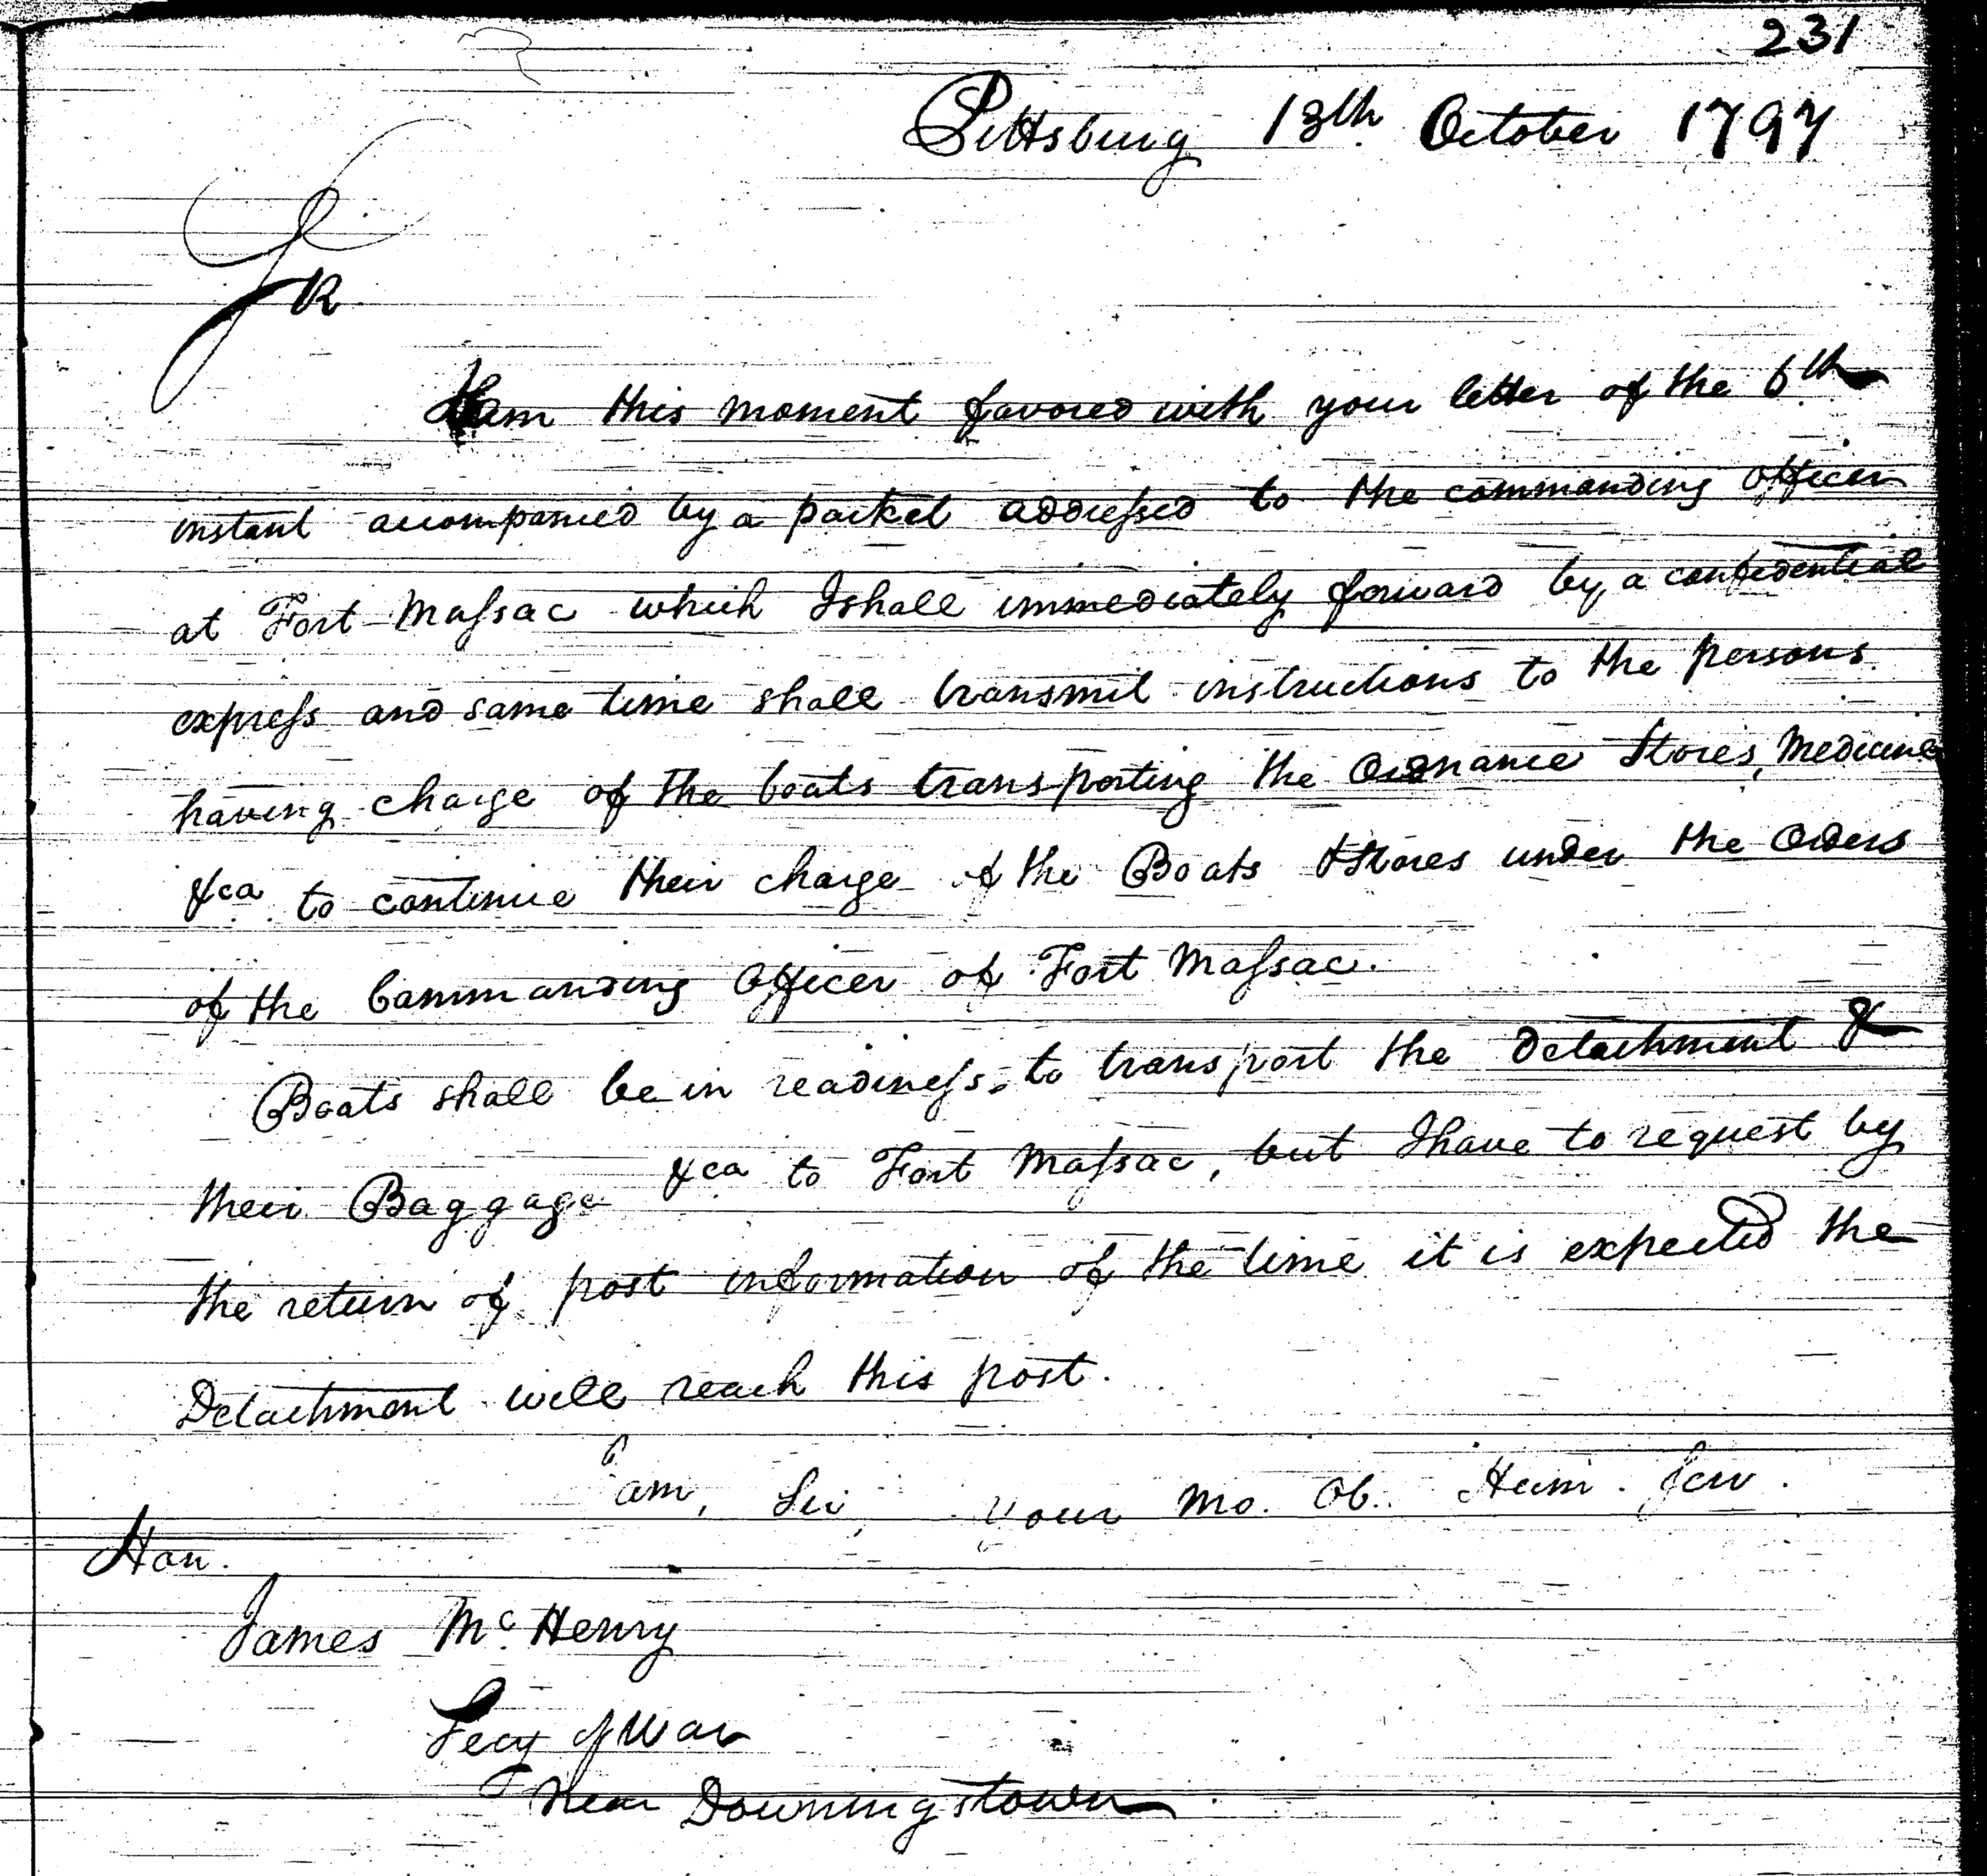 231
Pittsburg 13th October 1797
Sir
I am this moment favored with your letter of the 6th
instant accompanied by a packet addressed to the commanding officer
at Fort Massac which I shall immediately forward by a confidential
express and same time shall transmit instructions to the persons
having charge of the boats transporting the Ordnance Stores, Medicine
&ca to continue their charge of the Boats & Stores under the Orders
of the Commanding Officer of Fort Massac.
Boats shall be in readiness to transport the detachment &
their Baggage &ca to Fort Massac, but I have to request by
the return of post information of the time it is expected the
Detachment will reach this post.
I am, Sir, your Mo. Ob. Hum. Serv.
Hon.
James McHenry
Secy of War
Near Downingstown